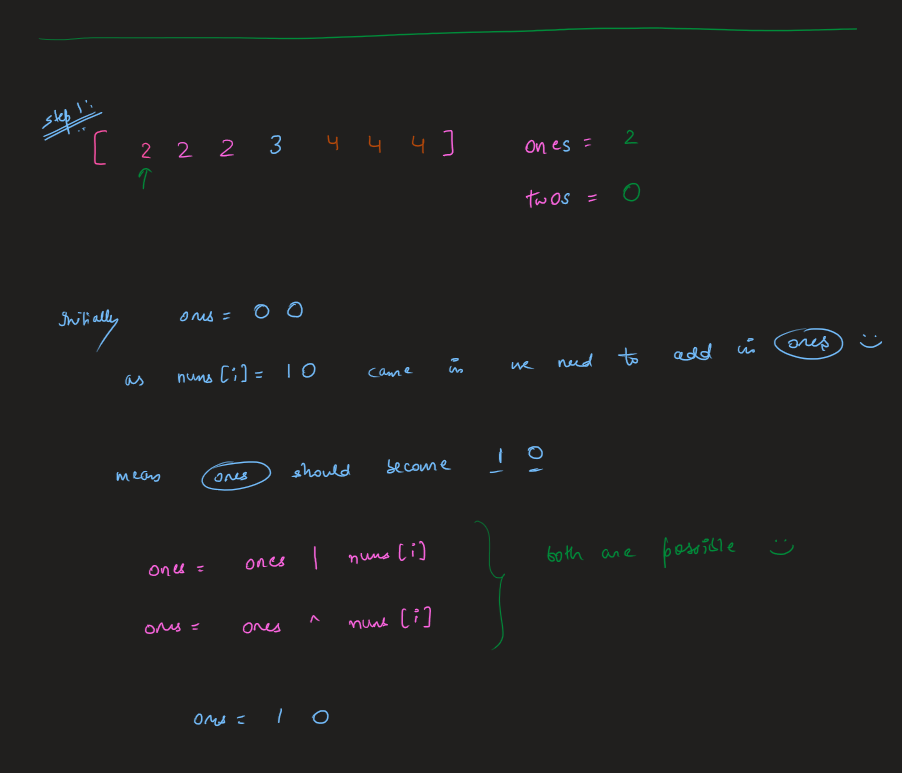 step 1:
[ 2 2 2 3 4 4 4 ] ones = 2
↑
twos = 0
Initially ones = 0 0
as nums[i] = 1 0 came in we need to add in ones :)
means ones should become 1 0
ones = ones | nums[i]
both are possible :)
ones = ones ^ nums[i]
ones = 1 0